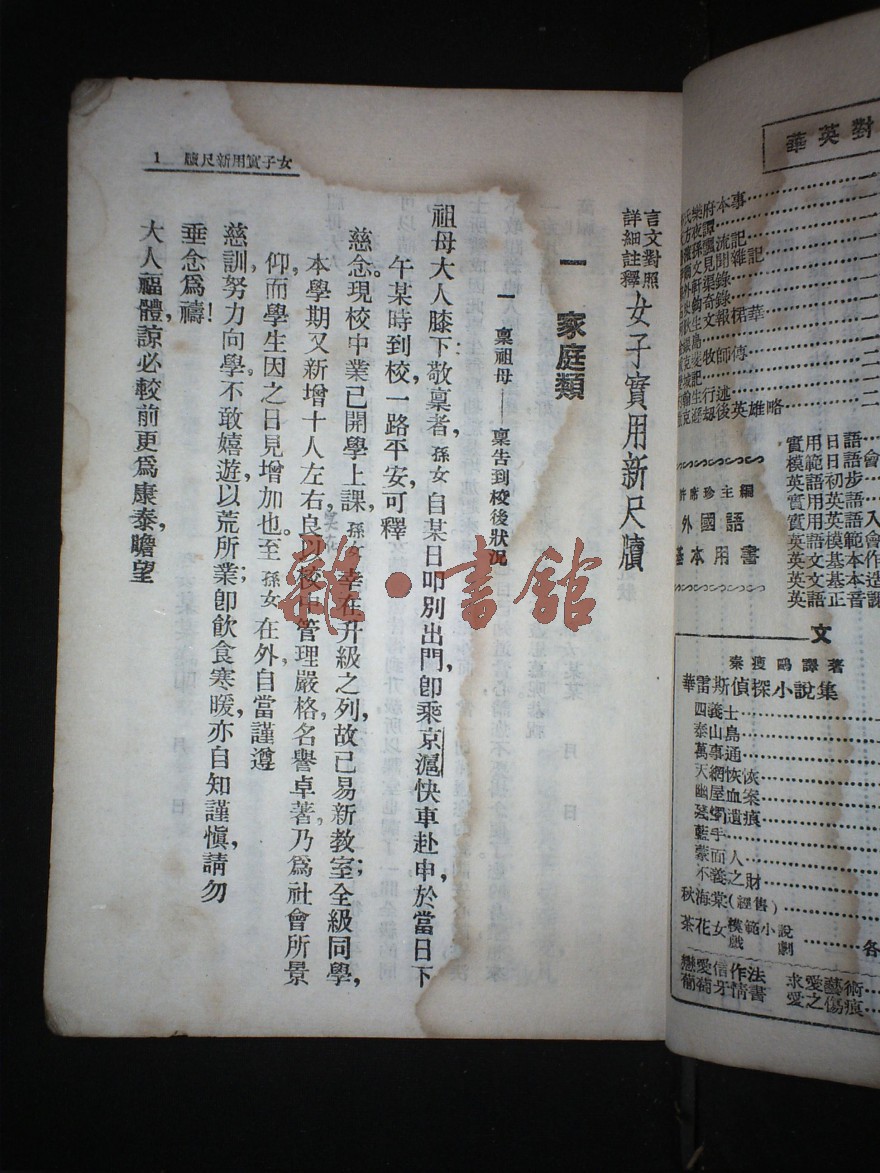 女子實用新尺牘 1
言文對照
詳細註釋
女子實用新尺牘
一 家庭類
一 稟祖母——稟告到校後狀況
祖母大人膝下：敬稟者，孫女自某日叩別出門，卽乘京滬快車赴申，於當日下
午某時到校，一路平安，可釋
慈念。現校中業已開學上課，孫女幸在升級之列，故已易新教室；全級同學，
本學期又新增十人左右，良以校中管理嚴格，名譽卓著，乃爲社會所景
仰，而學生因之日見增加也。至孫女在外，自當謹遵
慈訓，努力向學，不敢嬉遊，以荒所業；卽飲食寒暖，亦自知謹愼，請勿
垂念爲禱！
大人福體，諒必較前更爲康泰，瞻望
雜·書館
華英對
樂府本事
夜譚
流記
見聞雜記
錄
英雄略
主編
外國語
基本用書
實用日語會
模範日語
英語初步
文
秦瘦鷗譯著
華雷斯偵探小說集
四義士
泰山島
萬事通
天網恢恢
幽屋血案
殘燭遺痕
藍手
蒙面人
不義之財
秋海棠(經售)
茶花女 模範小說 戲劇 各
戀愛信作法 求愛藝術
葡萄牙情書 愛之傷痕